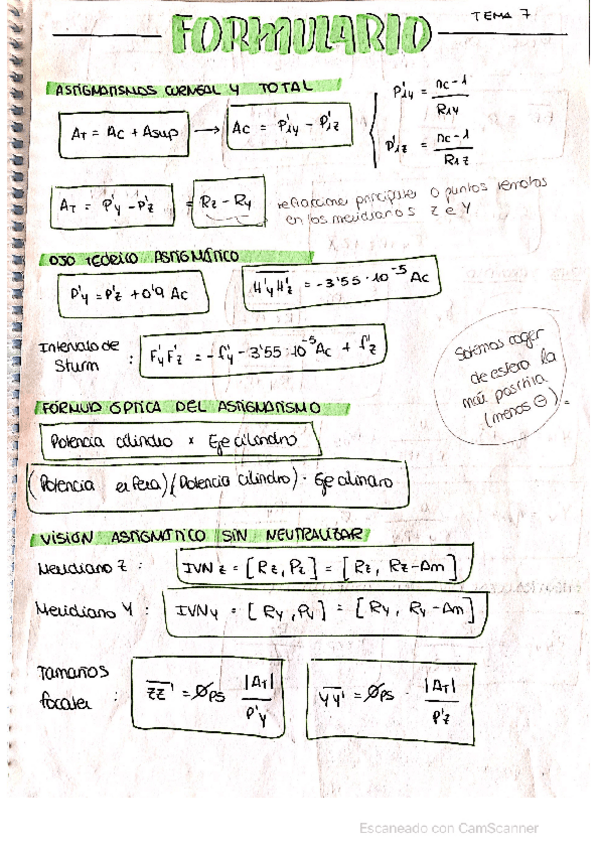 TEMA 7
FORMULARIO
ASTIGMATISMOS CORNEAL Y TOTAL
AT = AC + Asup → AC = P'1y - P'1z { P'1y = nc-1 / R1y
P'1z = nc-1 / R1z
AT = P'y - P'z = Rz - Ry refracciones principales o puntos remotos
en los meridianos Z e Y
OJO TEÓRICO ASTIGMÁTICO
P'y = P'z + 0'9 Ac H'yH'z = -3'55·10⁻⁵ Ac
Intervalo de
Sturm : F'yF'z = -f'y - 3'55·10⁻⁵ Ac + f'z
Solemos coger
de esfera la
más positiva
(menos ⊖).
FÓRMULA ÓPTICA DEL ASTIGMATISMO
Potencia cilindro x Eje cilindro
(Potencia esfera)(Potencia cilindro)· Eje cilindro
VISIÓN ASTIGMÁTICO SIN NEUTRALIZAR
Meridiano Z : IVNz = [Rz, Pz] = [Rz, Rz-Am]
Meridiano Y : IVNy = [Ry, Py] = [Ry, Ry-Am]
Tamaños
focales : ZZ' = ØPS |AT| / P'y YY' = ØPS · |AT| / P'z
Escaneado con CamScanner